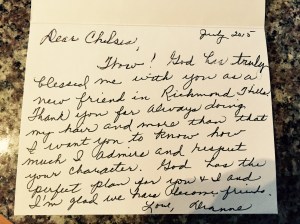 July 2015
Dear Chelsea,
Wow! God has truly
blessed me with you as a
new friend in Richmond Hill.
Thank you for always doing
my hair and more than that
I want you to know how
much I admire and respect
your character. God has the
perfect plan for you & I and
I'm glad we have become friends.
Love,